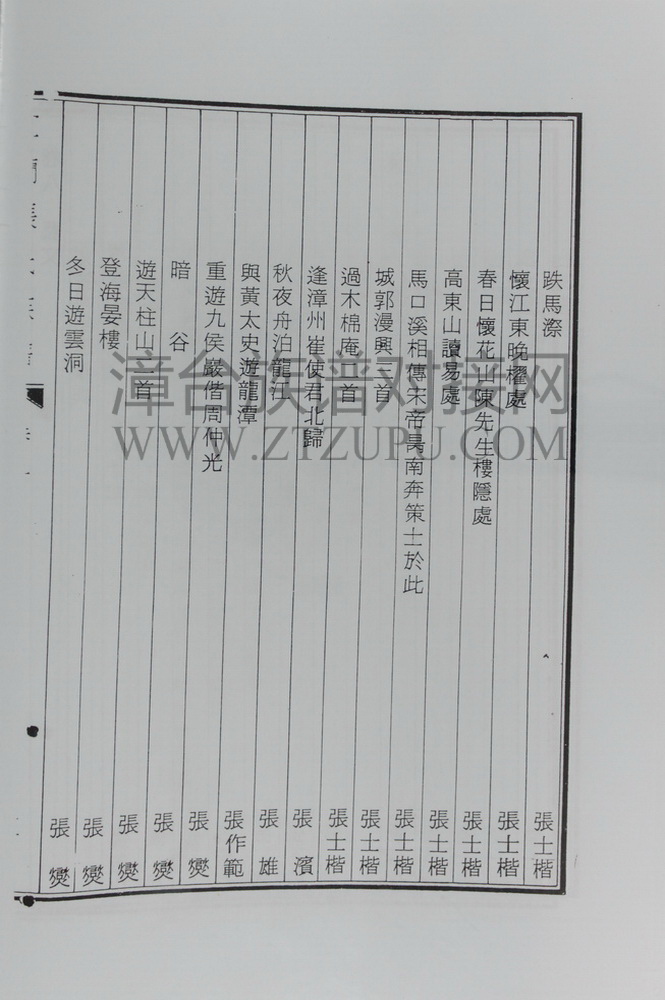 跌馬漈 張士楷
懷江東晚櫂處 張士楷
春日懷花山陳先生樓隱處 張士楷
高東山讀易處 張士楷
馬口溪相傳宋帝昺南奔策士於此 張士楷
城郭漫興三首 張士楷
過木棉庵二首 張士楷
逢漳州崔使君北歸 張濱
秋夜舟泊龍江 張雄
與黃太史遊龍潭 張作範
重遊九侯巖偕周仲光 張燮
暗谷 張燮
遊天柱山二首 張燮
登海晏樓 張燮
冬日遊雲洞 張燮
漳台族谱对接网
WWW.ZTZUPU.COM